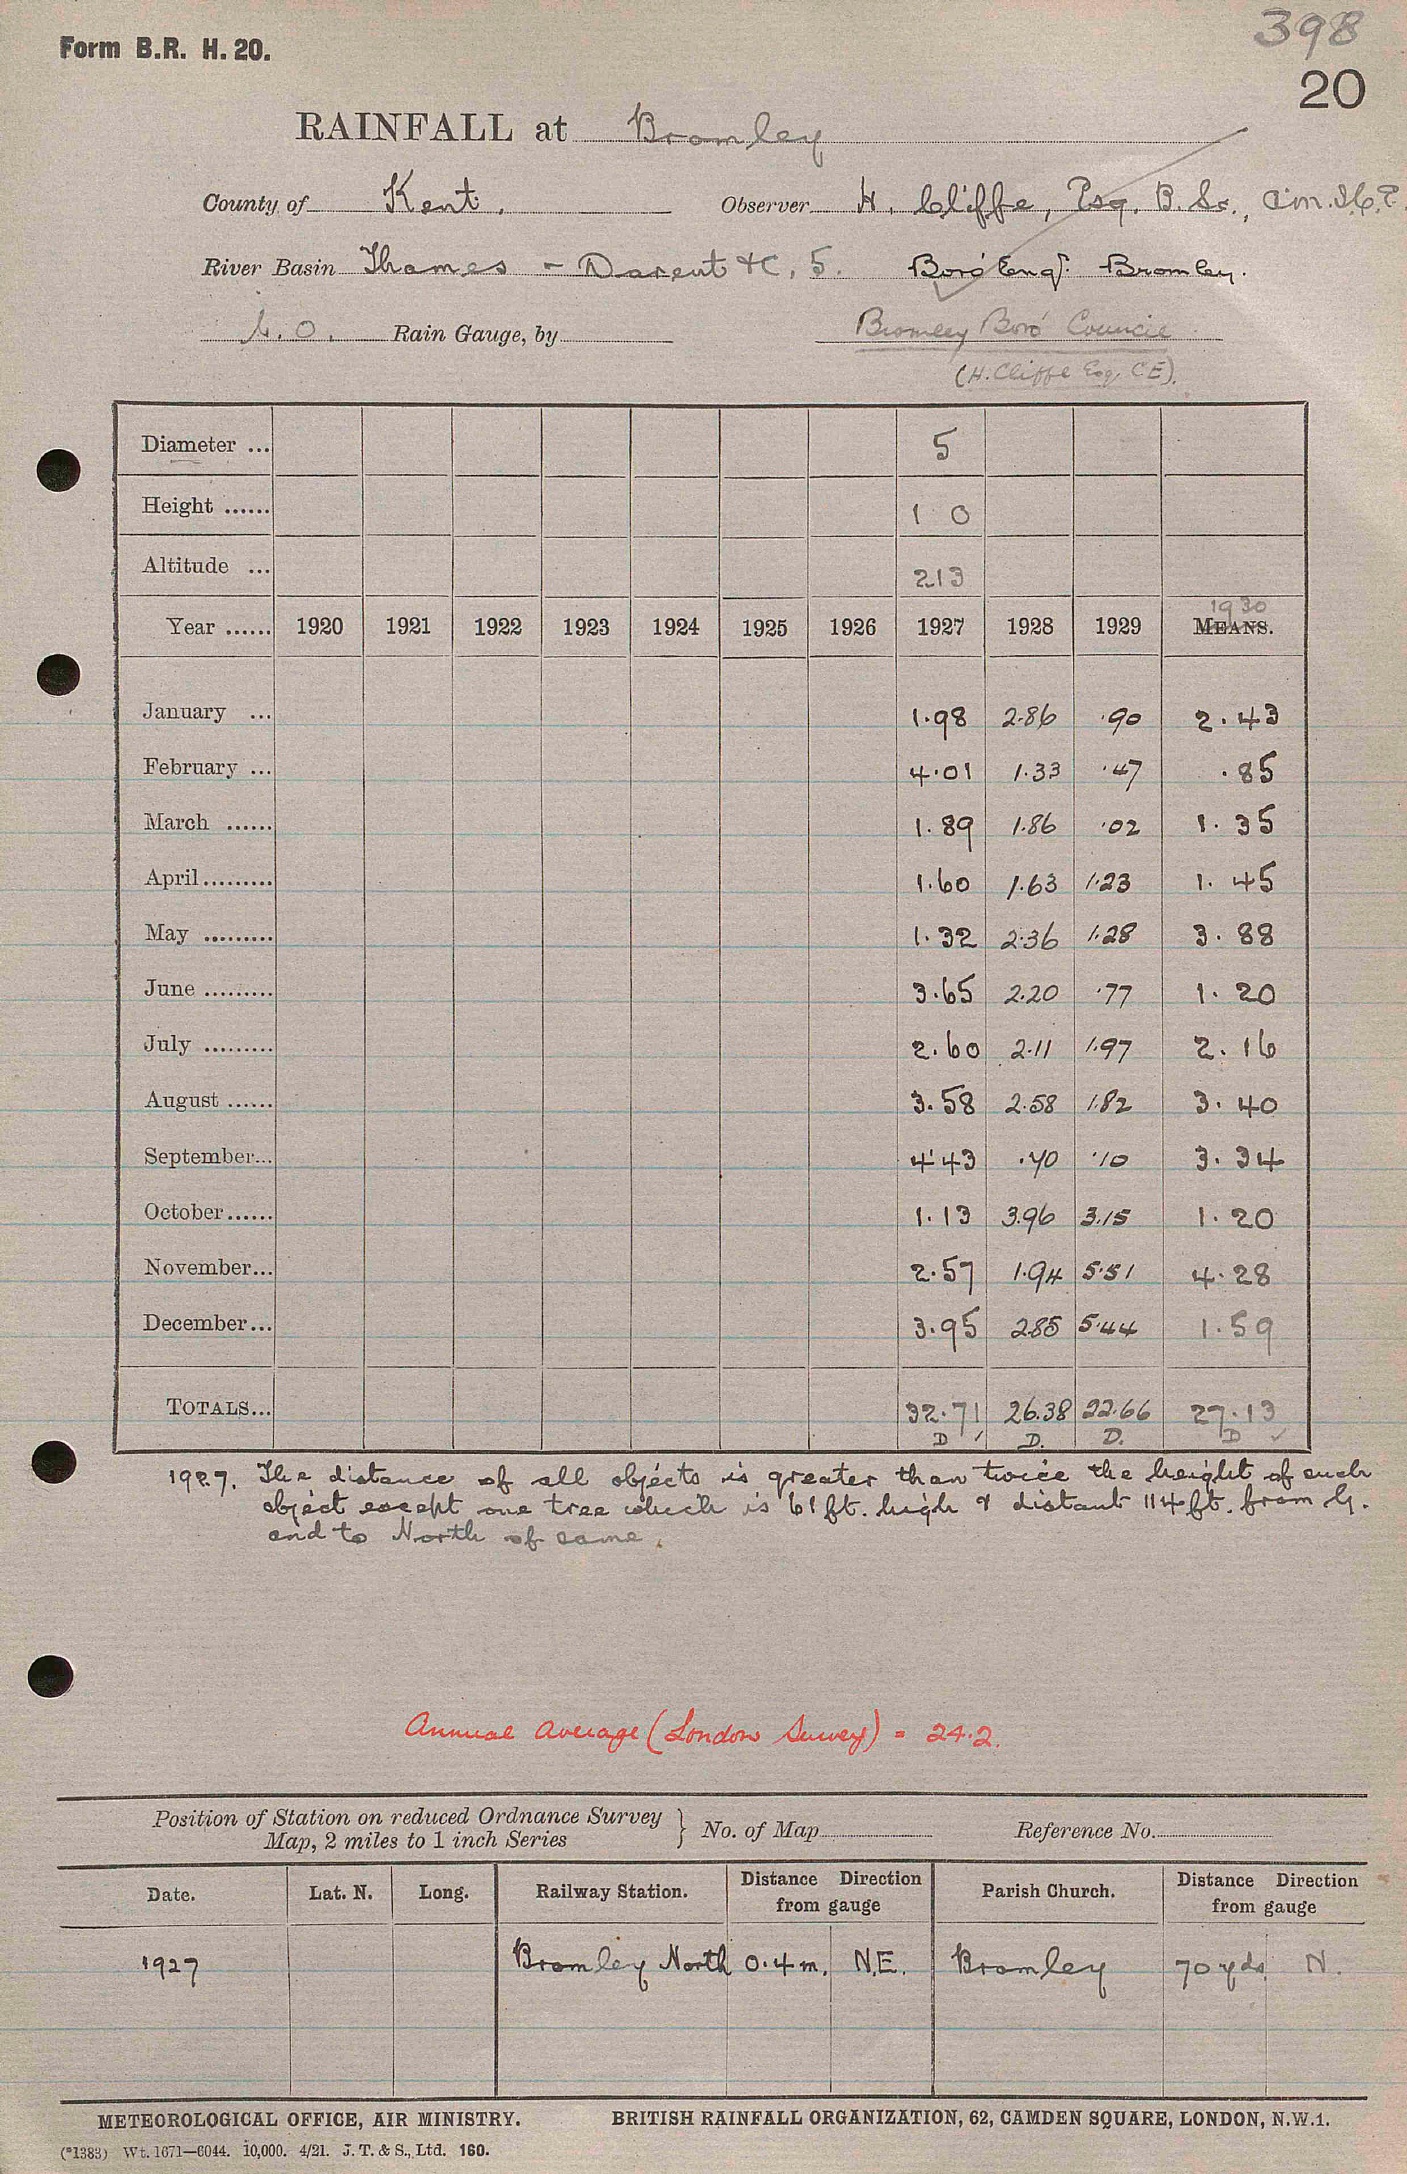 398
Form B.R. H. 20.
20
RAINFALL at Bromley
County of Kent. Observer H. Cliffe, Esq. B.Sc.,
River Basin Thames - Darent &c, 5. Boro' Engr. Bromley.
Rain Gauge, by Bromley Boro' Council
(H. Cliffe Esq. CE).
Diameter ... 5
Height ...... 1 0
Altitude ... 213
1930
Year ...... 1920 1921 1922 1923 1924 1925 1926 1927 1928 1929 MEANS.
January ... 1.98 2.86 .90 2.43
February ... 4.01 1.33 .47 .85
March ...... 1.89 1.86 .02 1.35
April......... 1.60 1.63 1.23 1.45
May ......... 1.32 2.36 1.28 3.88
June ......... 3.65 2.20 .77 1.20
July ......... 2.60 2.11 1.97 2.16
August ...... 3.58 2.58 1.82 3.40
September... 4.43 .70 .10 3.34
October...... 1.13 3.96 3.15 1.20
November... 2.57 1.94 5.51 4.28
December... 3.95 2.85 5.44 1.59
TOTALS... 32.71 26.38 22.66 27.13
D ✓ D. D. D ✓
1927. The distance of all objects is greater than twice the height of such
object except one tree which is 61 ft. high & distant 114 ft. from G.
and to North of same.
Annual average (London Survey) = 24.2.
Position of Station on reduced Ordnance Survey
Map, 2 miles to 1 inch Series } No. of Map Reference No.
Date. Lat. N. Long. Railway Station. Distance Direction from gauge Parish Church. Distance Direction from gauge
1927 Bromley North 0.4 m. N.E. Bromley 70 yds N.
METEOROLOGICAL OFFICE, AIR MINISTRY. BRITISH RAINFALL ORGANIZATION, 62, CAMDEN SQUARE, LONDON, N.W.1.
(*1383) Wt. 1671—6044. 10,000. 4/21. J. T. & S., Ltd. 160.